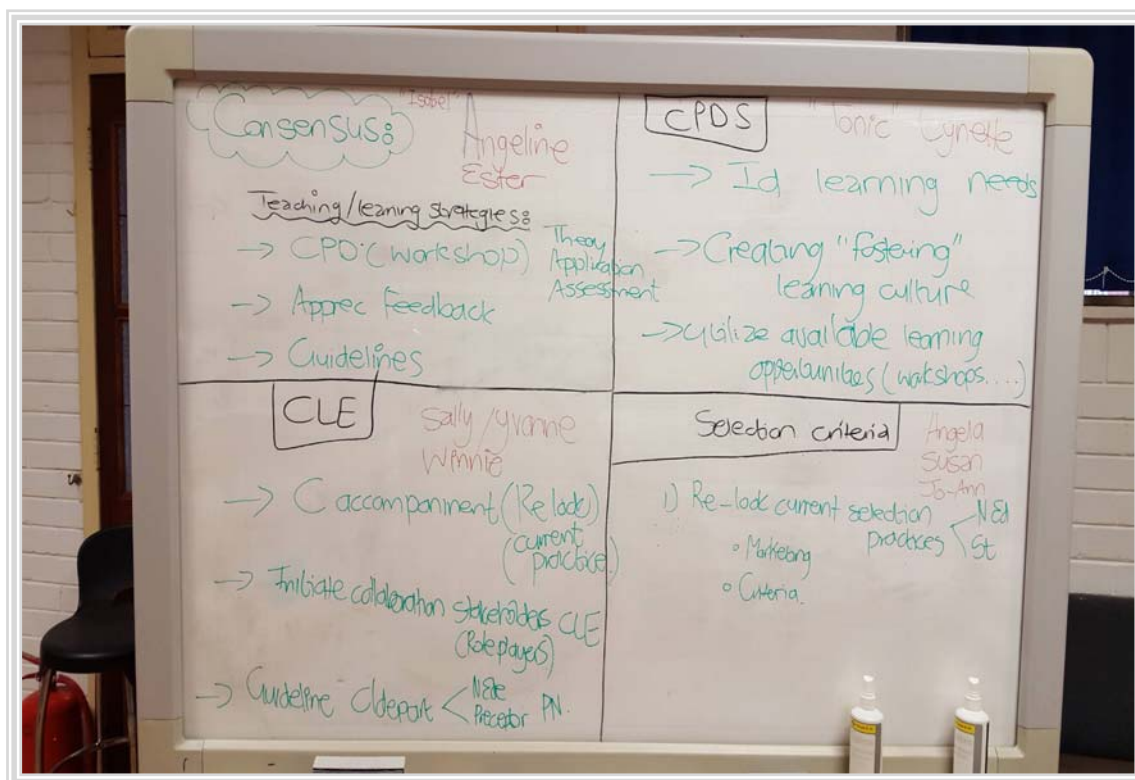 Consensus:
"Isobel"
Angeline
Ester
Teaching/learning strategies:
→ CPD: (workshop)
Theory
Application
Assessment
→ Apprec Feedback
→ Guidelines
CPDS
"Tonic" Lynette
→ Id learning needs
→ Creating "fostering"
learning culture
→ Utilize available learning
opportunities (workshops....)
CLE
Sally /Yvonne
Winnie
→ C accompaniment (Re look)
(current
practice)
→ Initiate collaboration stakeholders CLE
(Role players)
→ Guideline
Preceptor PN.
Selection criteria
Angela
Susan
Jo-Ann
1) Re-look current selection
practices < NEd
St
◦ Marketing
◦ Criteria.